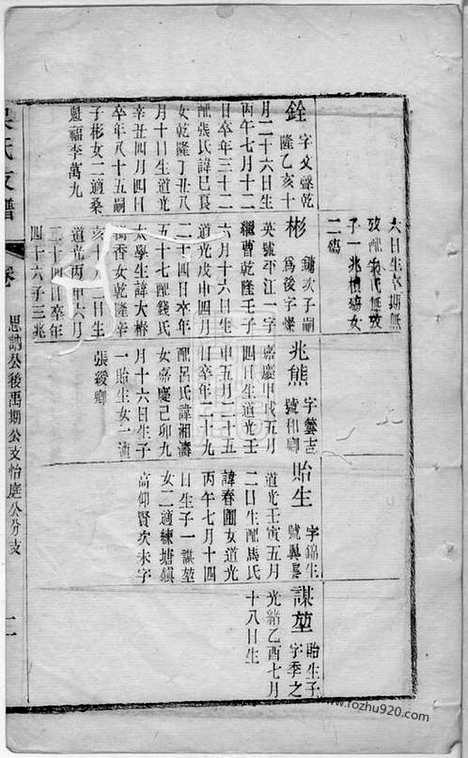 銓 字文聲乾
隆乙亥十
月二十六日生
丙午七月十二
日卒年三十二
配張氏諱巳良
女乾隆丁丑八
月十日生道光
辛丑四月四日
卒年八十五嗣
子彬女二適桑
魁福李萬九
六日生卒斯無
攷配氏無攷
子一兆楨殤女
二殤
彬 鏞次子嗣
為後字燮
英號平江一字
繼曹乾隆壬子
六月十六日生
道光戊申四月
二十四日卒年
五十七配錢氏
太學生諱大椿
香女乾隆
亥十月二日生
道光丙申六月
二十四日卒年
四十六子三兆
兆熊 字藝吉
號和卿
嘉慶甲戌五月
四日生道光壬
申五月二十五
日卒年三十九
配呂氏諱湘濤
女嘉慶己卯九
月十六日生子
一貽生女一適
張綬卿
貽生 字錦生
號
道光壬寅五月
二日生配馬氏
諱春圃女道光
丙午七月十四
日生子一謀堃
女二適練塘鎮
高仰賢次未字
謀堃 貽生子
字季之
光緒乙酉七月
十八日生
氏支譜
卷
思訥公後禹期公支怡庭公分支
二
www.fozhu920.com